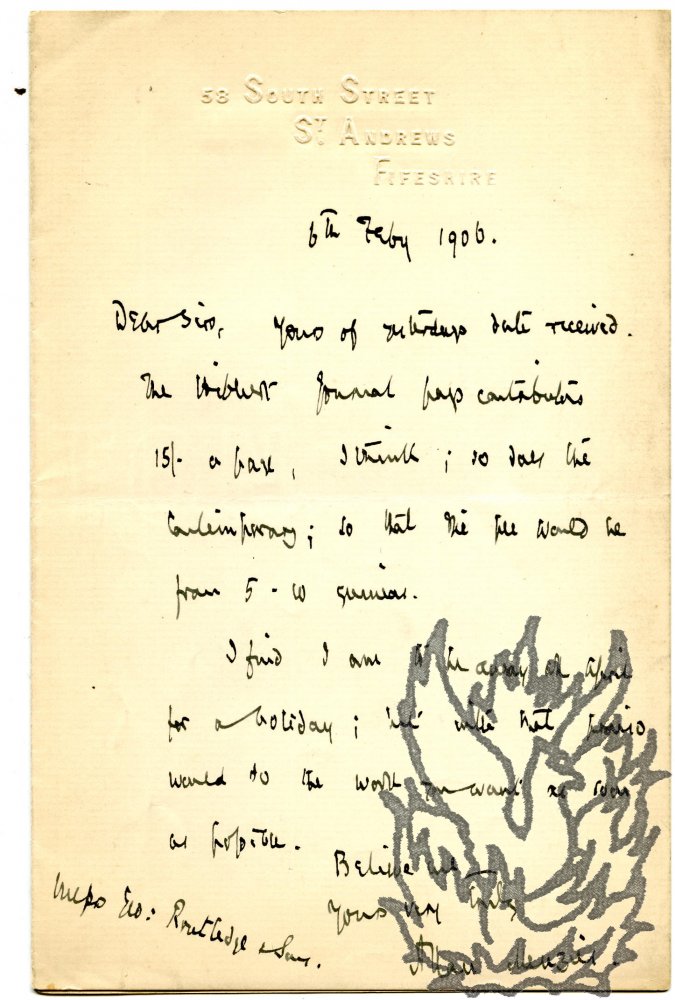 58 SOUTH STREET
ST. ANDREWS
FIFESHIRE
6th Feby 1906.
Dear Sirs, Yours of yesterdays date received.
The Hibbert Journal pays contributors
15/- a page, I think; so does the
Contemporary; so that the fee would be
from 5 - 10 guineas.
I find I am to be away in April
for a holiday; but with that
would do the work you want as soon
as possible.
Believe me
Yours very truly
Allan Menzies.
Messrs Geo: Routledge & Sons.